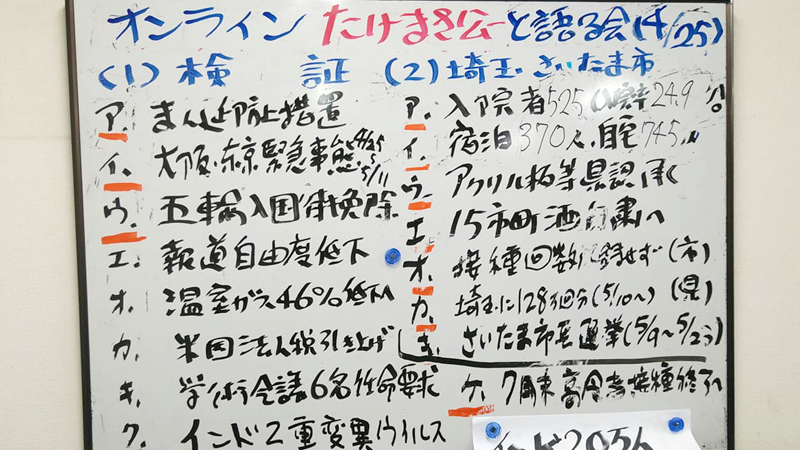 オンライン たけまさ公一と語る会(4/25)
(1) 検 証
ア. まん延防止措置
イ. 大阪・東京緊急事態 4/25 5/11
ウ. 五輪入国待機免除
エ. 報道自由度低下
オ. 温室ガス46%低下へ
カ. 米国法人税引き上げ
キ. 学術会議6名任命要求
ク. インド2重変異ウイルス
(2) 埼玉・さいたま市
ア. 入院者525人 24.9
イ. 宿泊370人・自宅745人
ウ. アクリル板等県認
エ. 15市町酒自粛へ
オ. 接種回数 せず(市)
カ. 埼玉に128万回分(5/10〜)(県)
キ. さいたま市長選挙(5/9〜5/23)
ケ. 7月末高齢者接種終了へ